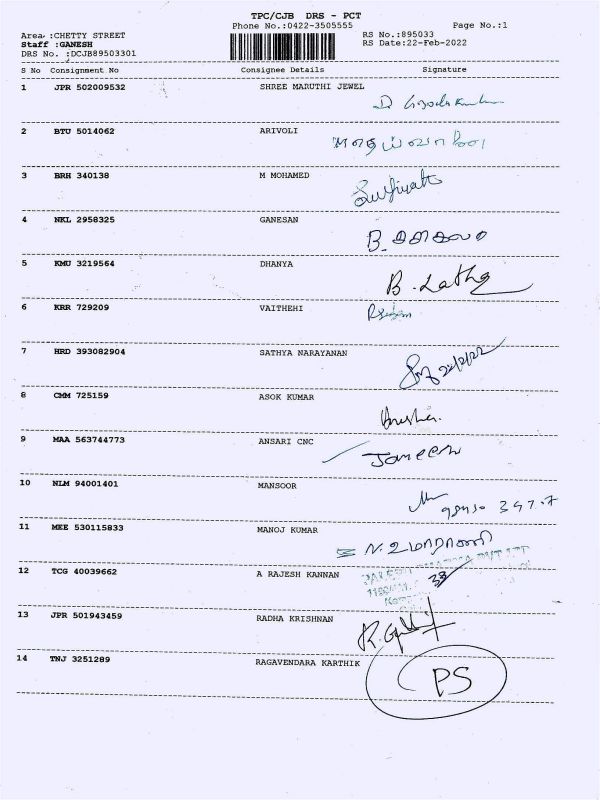 TPC/CJB DRS - PCT
Phone No.:0422-3505555 Page No.:1
Area :CHETTY STREET RS No.:895033
Staff :GANESH RS Date:22-Feb-2022
DRS No. :DCJB89503301
S No Consignment No Consignee Details Signature
1 JPR 502009532 SHREE MARUTHI JEWEL
2 BTU 5014062 ARIVOLI
3 BRH 340138 M MOHAMED
4 NKL 2958325 GANESAN
5 KMU 3219564 DHANYA B. Latha
6 KRR 729209 VAITHEHI
7 HRD 393082904 SATHYA NARAYANAN 22/2/22
8 CMM 725159 ASOK KUMAR
9 MAA 563744773 ANSARI CNC Jameer
10 NLM 94001401 MANSOOR
11 MEE 530115833 MANOJ KUMAR N. உமாராணி
12 TCG 40039662 A RAJESH KANNAN
13 JPR 501943459 RADHA KRISHNAN
14 TNJ 3251289 RAGAVENDARA KARTHIK PS